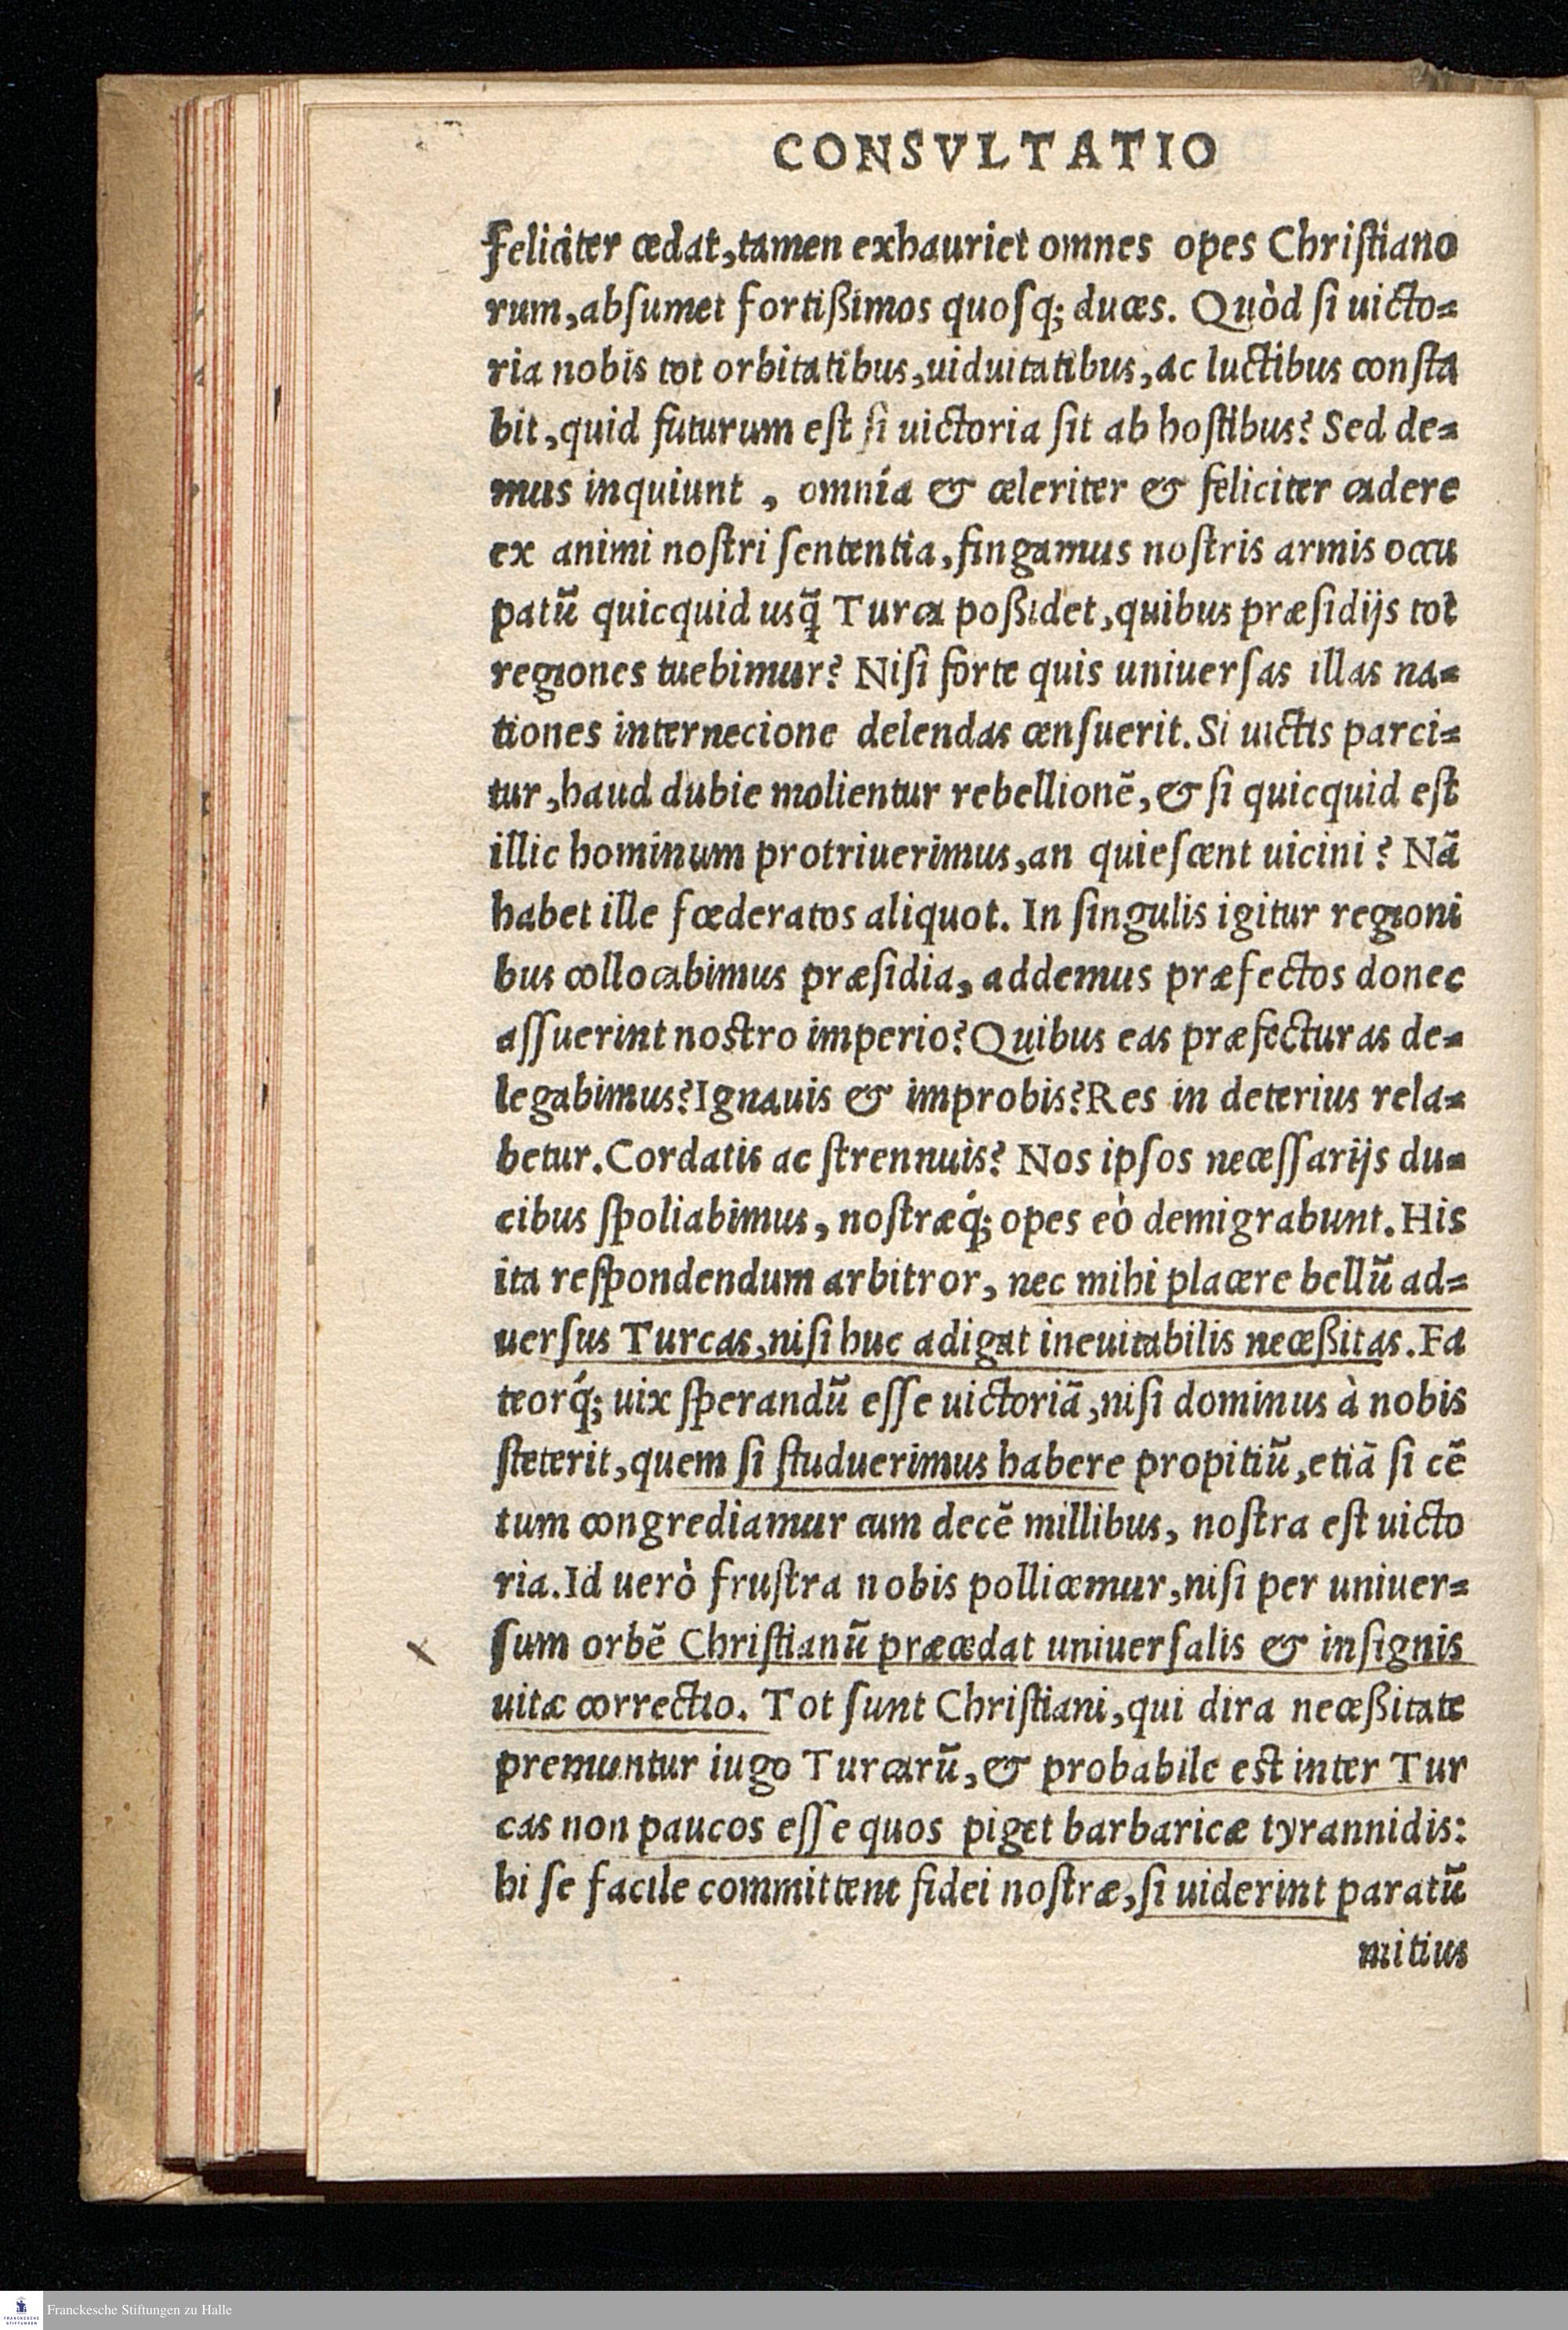 CONSVLTATIO
feliciter cedat, tamen exhauriet omnes opes Christiano
rum, absumet fortißimos quosq; duces. Quòd si uicto=
ria nobis tot orbitatibus, uiduitatibus, ac luctibus consta
bit, quid futurum est si uictoria sit ab hostibus? Sed de=
mus inquiunt, omnía & celeriter & feliciter cadere
ex animi nostri sententia, fingamus nostris armis occu
patũ quicquid usq̃ Turca poßidet, quibus præsidijs tot
regiones tuebimur? Nisi forte quis uniuersas illas na=
tiones internecione delendas censuerit. Si uictis parci=
tur, haud dubie molientur rebellionẽ, & si quicquid est
illic hominum protriuerimus, an quiescent uicini? Nã
habet ille fœderatos aliquot. In singulis igitur regioni
bus collocabimus præsidia, addemus præfectos donec
assuerint nostro imperio? Quibus eas præfecturas de=
legabimus? Ignauis & improbis? Res in deterius rela=
betur. Cordatis ac strennuis? Nos ipsos necessarijs du=
cibus spoliabimus, nostræq́; opes eò demigrabunt. His
ita respondendum arbitror, nec mihi placere bellũ ad=
uersus Turcas, nisi huc adigat ineuitabilis neceßitas. Fa
teorq́; uix sperandũ esse uictoriã, nisi dominus à nobis
steterit, quem si studuerimus habere propitiũ, etiã si cẽ
tum congrediamur cum decẽ millibus, nostra est uicto
ria. Id uerò frustra nobis pollicemur, nisi per uniuer=
sum orbẽ Christianũ præcedat uniuersalis & insignis
uitæ correctio. Tot sunt Christiani, qui dira neceßitate
premuntur iugo Turcarũ, & probabile est inter Tur
cas non paucos esse quos piget barbaricæ tyrannidis:
hi se facile committent fidei nostræ, si uiderint paratũ
mitius
Franckesche Stiftungen zu Halle